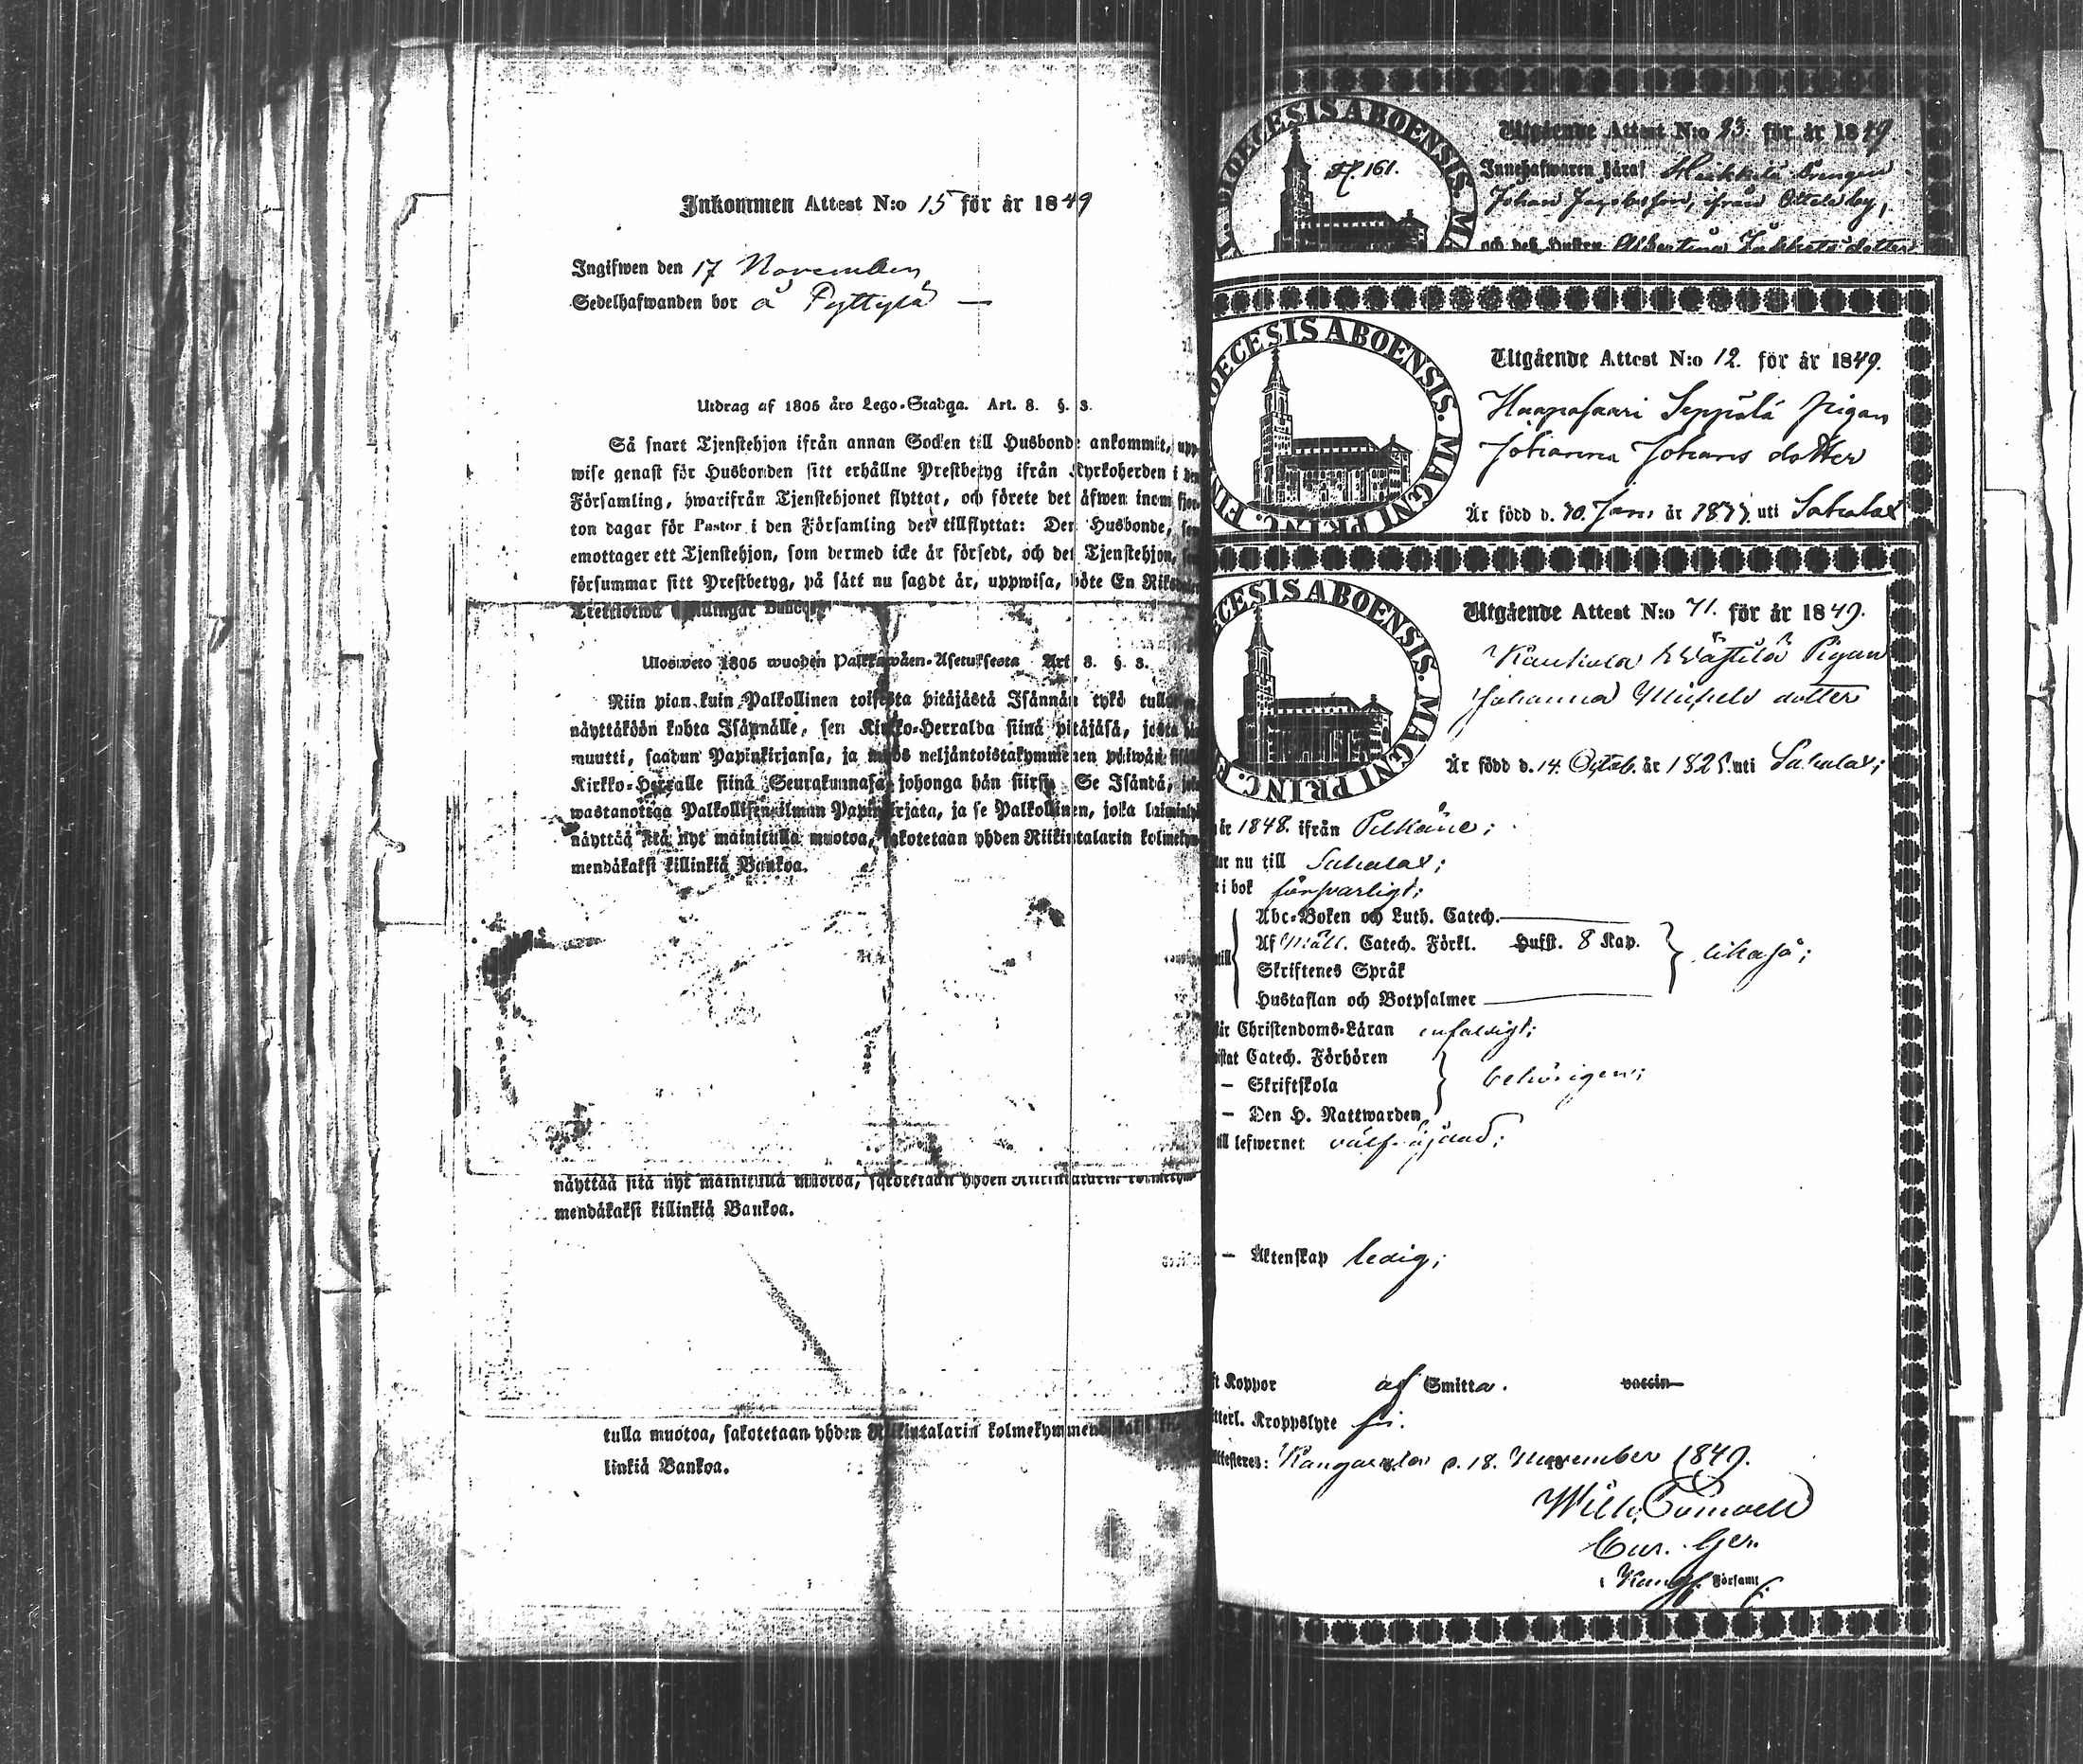 Inkommen Attest N:o 15 för år 1849
Ingifwen den 17 November
Sedelhafwanden bor å Pyttylä —
Utdrag af 1805 års Lego-Stadga. Art. 8. §. 3.
Så snart Tjenstehjon ifrån annan Socken till Husbonde ankommit, upp-
wise genast för Husbonden sitt erhållne Prestbetyg ifrån Kyrkoherden i den
Församling, hwarifrån Tjenstehjonet flyttat, och förete det äfwen inom fjor-
ton dagar för Pastor i den Församling det tillflyttat: Den Husbonde, som
emottager ett Tjenstehjon, som dermed icke är försedt, och det Tjenstehjon,
försummar sitt Prestbetyg, på sätt nu sagdt är, uppwisa, böte En Riksdaler
Trettiotwå Skillingar Banco.
Ulosweto 1805 wuoden Palkkawäen-Asetuksesta Art 8. §. 3.
Niin pian kuin Palkollinen toisesta pitäjästä Isännän tykö tullut on
näyttäköön kohta Isännälle, sen Kirkko-Herralda siinä pitäjäsä, josta hän
muutti, saadun Papinkirjansa, ja myös neljäntoistakymmenen päiwän
Kirkko-Herralle siinä Seurakunnasa, johonga hän siirsy. Se Isändä, joka
wastanottaa Palkollisen ilman Papinkirjata, ja se Palkollinen, joka laiminlyö
näyttää sitä nyt mainitulla muotoa, sakotetaan yhden Riikintalarin kolmekym-
mendäkaksi killinkiä Bankoa.
näyttää sitä nyt mainitulla muotoa, sakotetaan yhden Riikintalarin kolmekym-
mendäkaksi killinkiä Bankoa.
tulla muotoa, sakotetaan yhden Riikintalarin kolmekymmendäkaksi kil-
linkiä Bankoa.
DIOECESIS ABOENSIS. M
H. 161.
Utgående Attest N:o 23. för år 1849
Innehafwaren häraf Heikkilä Drengen
Johan Jacobsson, ifrån Ottela by,
och des Hustru Albertina Jakobsdotter
OECESIS ABOENSIS. MAGNI PRINC. FIN
Utgående Attest N:o 12. för år 1849.
Haapasaari Seppälä pigan
Johanna Johans dotter
Är född d. 30. Janu. år uti Sahalax
CESIS ABOENSIS. MAGNI PRINC. F
Utgående Attest N:o 71. för år 1849.
Pigan
Johanna Michels dotter
Är född d. 14. Octob. år 1825. uti Sahalax;
år 1848. ifrån Pelkäne;
nu till Sahalax;
i bok försvarligt;
Abc-Boken och Luth. Catech.
Af Mått. Catech. Förkl. Husst. 8 Kap.
likaså;
Skriftenes Språk
Hustaflan och Botpsalmer
Christendoms-Läran enfaldigt;
Catech. Förhören
– Skriftskola
behörigen;
– Den H. Nattwarden
till lefwernet välfräjdad;
– Äktenskap ledig;
Koppor af Smitta. vaccin
Kroppslyte fri.
Attesteres: Kangasala d. 18. November 1849.
Wilh.
Cur. Ger.
i Kang. Församl.